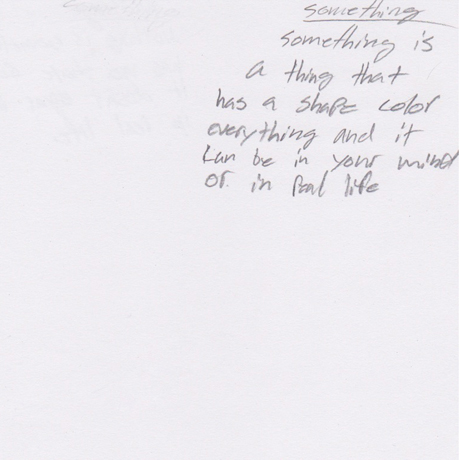 something
something is
a thing that
has a shape color
everything and it
can be in your mind
or in real life